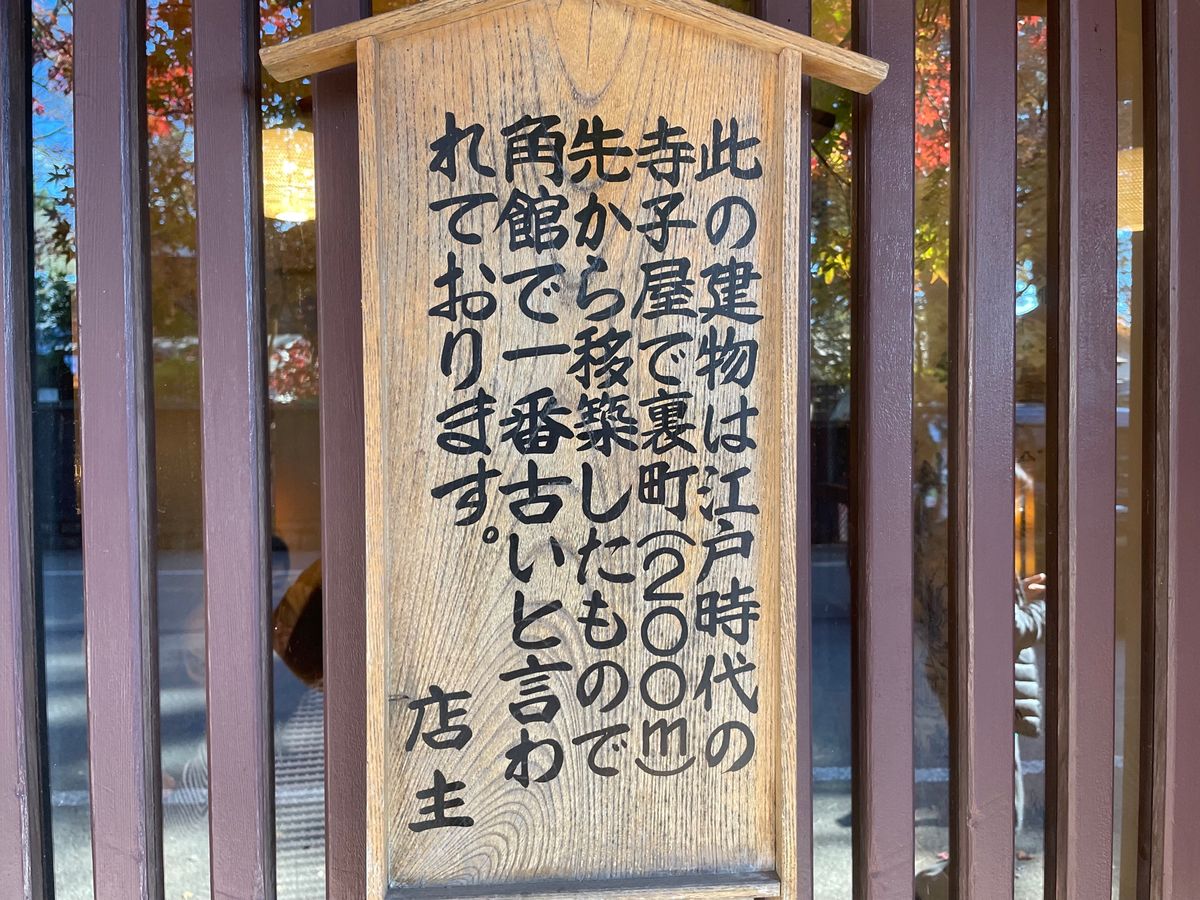 此の建物は江戸時代の
寺子屋で裏町(200m)
先から移築したもので
角館で一番古いと言わ
れております。
店主